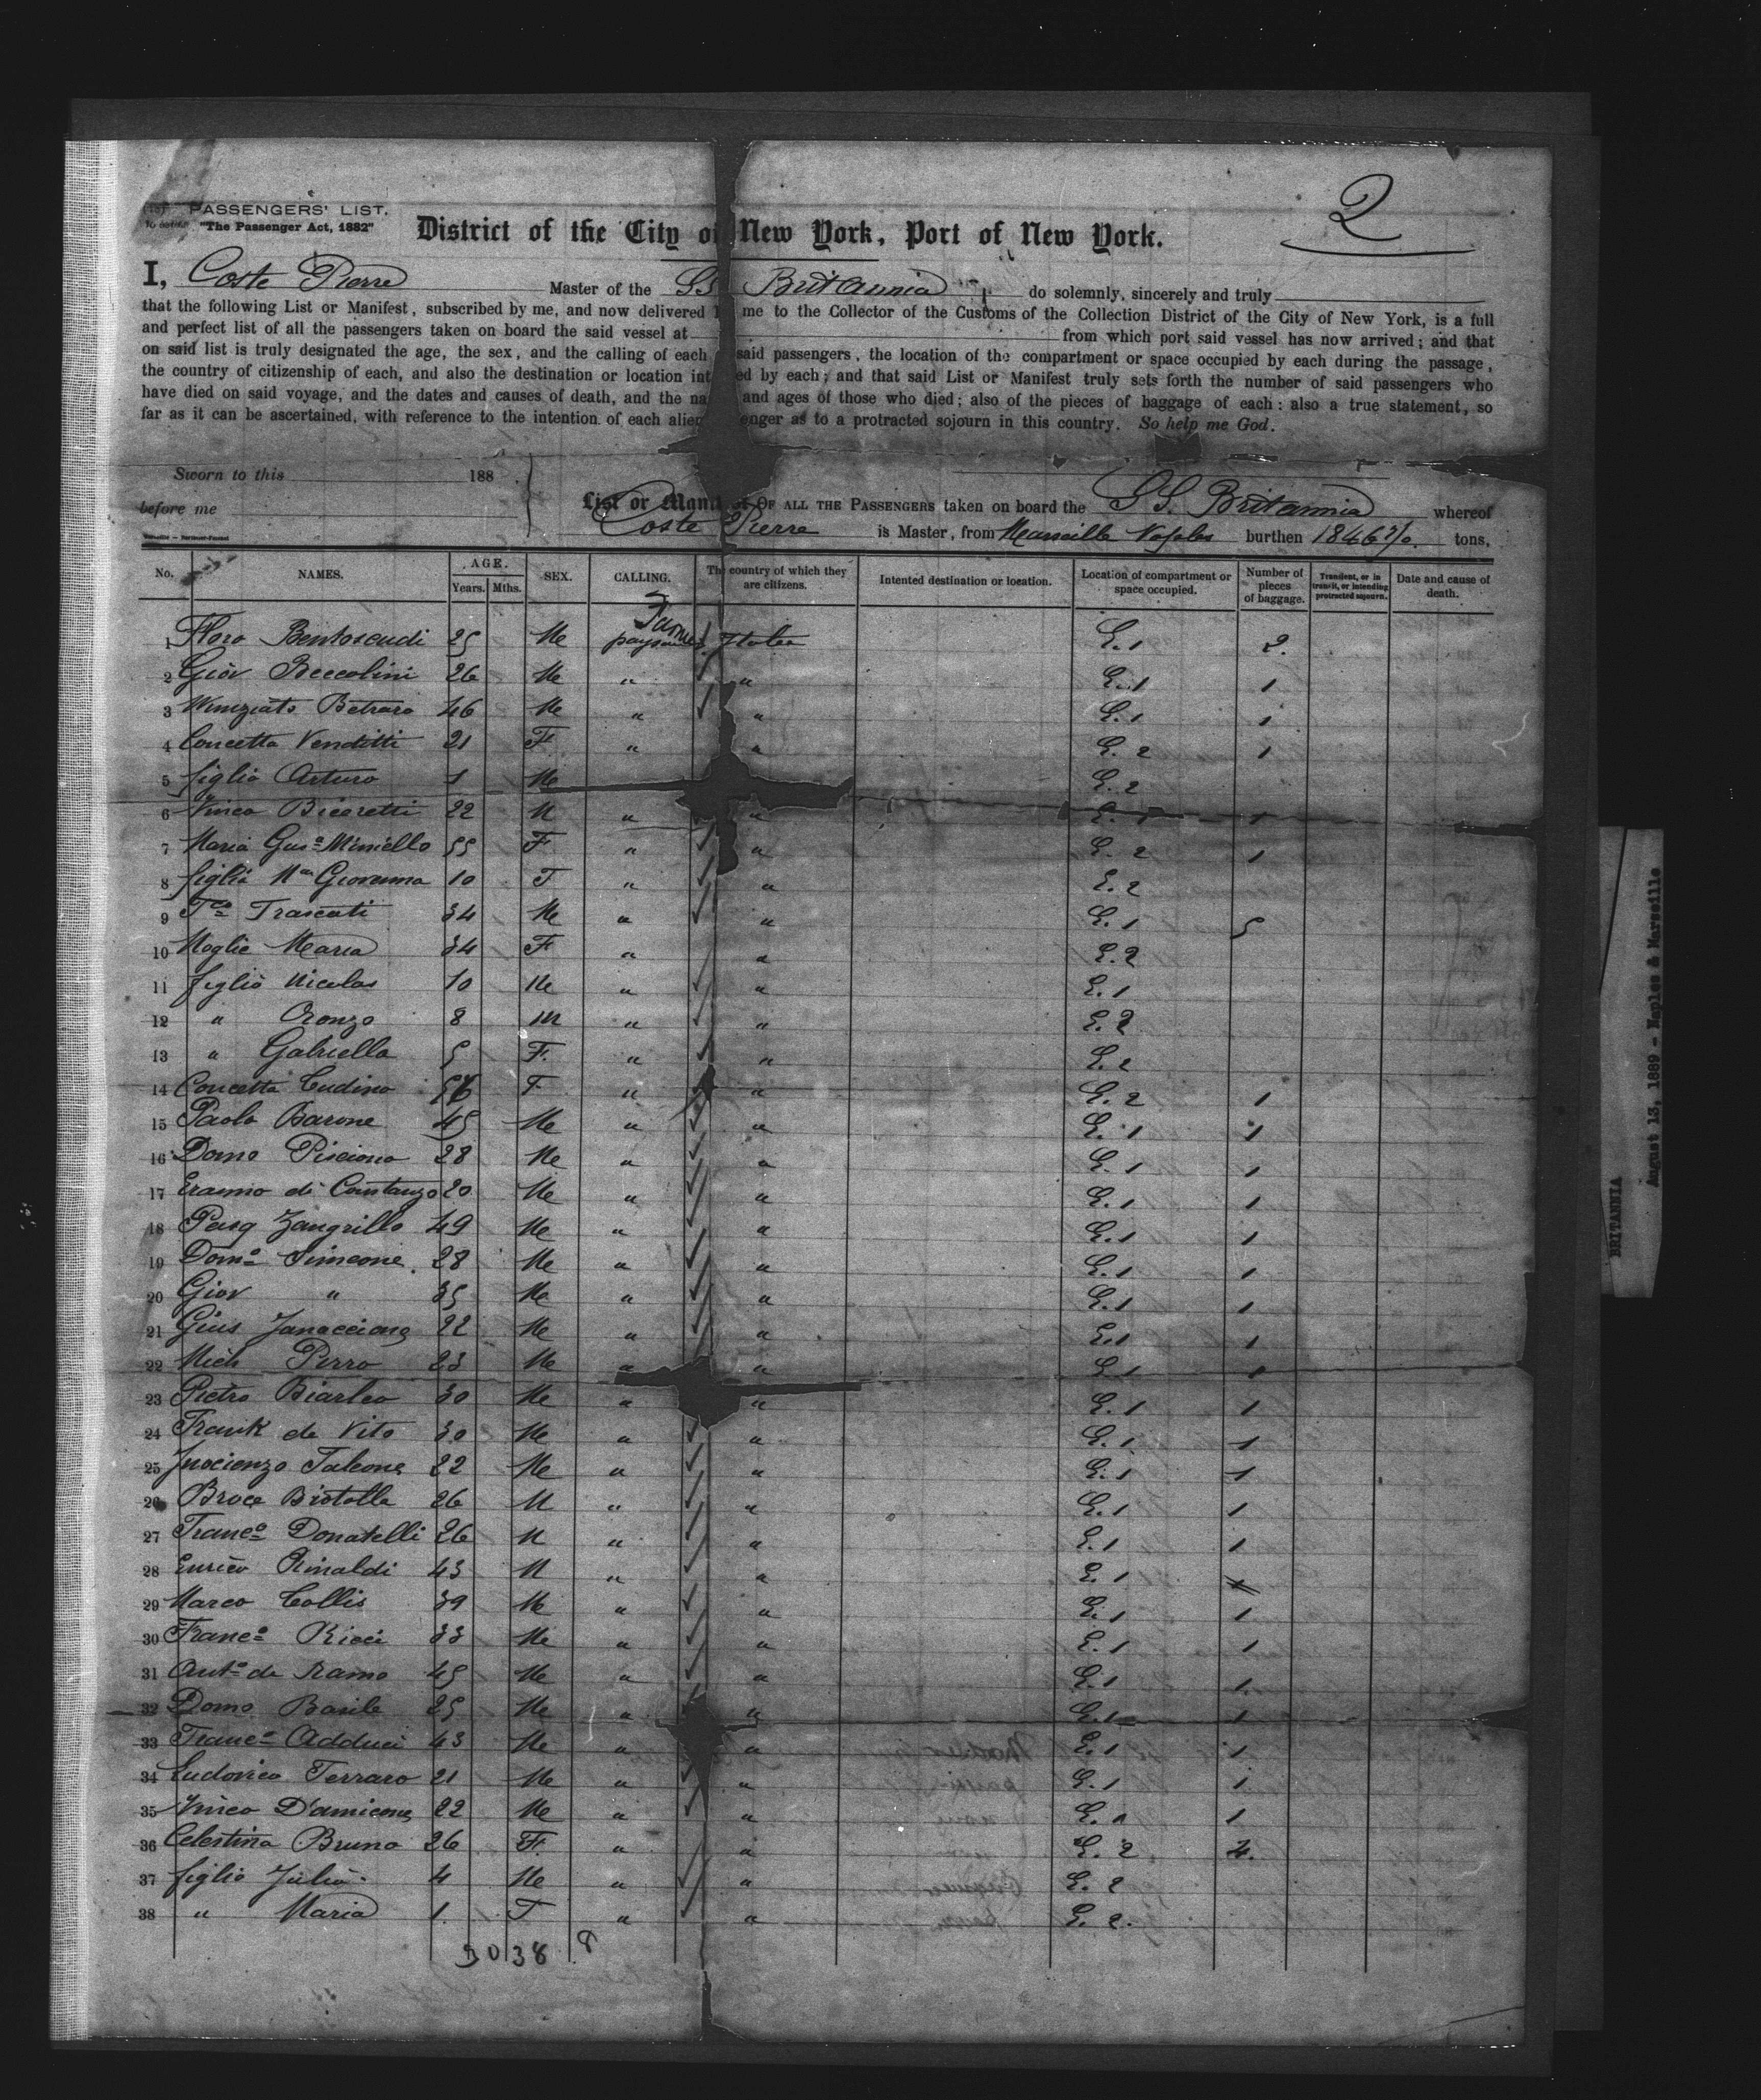 2
PASSENGERS' LIST.
"The Passenger Act, 1882"
District of the City of New York, Port of New York.
I, Coste Pierre Master of the SS Britannia do solemnly, sincerely and truly
that the following List or Manifest, subscribed by me, and now delivered me to the Collector of the Customs of the Collection District of the City of New York, is a full
and perfect list of all the passengers taken on board the said vessel at from which port said vessel has now arrived; and that
on said list is truly designated the age, the sex, and the calling of each said passengers, the location of the compartment or space occupied by each during the passage,
the country of citizenship of each, and also the destination or location int ed by each; and that said List or Manifest truly sets forth the number of said passengers who
have died on said voyage, and the dates and causes of death, and the na and ages of those who died; also of the pieces of baggage of each: also a true statement, so
far as it can be ascertained, with reference to the intention of each alien enger as to a protracted sojourn in this country. So help me God.
Sworn to this 188
before me
List or Manifest OF ALL THE PASSENGERS taken on board the SS. Britannia whereof
Coste Pierre is Master, from Marseille Naples burthen 1846 tons,
No. NAMES. AGE. Years. Mths. SEX. CALLING. The country of which they are citizens. Intented destination or location. Location of compartment or space occupied. Number of pieces of baggage. Transient, or in transit, or intending protracted sojourn. Date and cause of death.
1 Floro 25 Me E. 1 2.
2 Giov Beccolini 26 Me " " E. 1 1
3 Betraro 46 Me " " E. 1 1
4 Concetta Venditti 21 F " " E. 2 1
5 figlio Arturo 1 Me E. 2
6 Vinco Biceretti 22 M " " E. 1 1
7 Maria Gusa Miniello 55 F " " E. 2 1
8 figlia Ma Giovanna 10 F " " E. 2
9 Fco Frascati 34 Me " " E. 1 5
10 Moglie Maria 34 F " " E. 2
11 figlio Nicolas 10 Me " " E. 1
12 " Oronzo 8 M " " E. 2
13 " Gabriella 5 F. " " E. 2
14 Concetta Cudino F " " E. 2 1
15 Paolo Barone 45 Me " " E. 1 1
16 Domo Pisciono 28 Me " " E. 1 1
17 Erasmo di Constanzo 20 Me " " E. 1 1
18 Pasq Zangrillo 49 Me " " E. 1 1
19 Domo Simeone 28 Me " " E. 1 1
20 Giov " 35 Me " " E. 1 1
21 Gius 22 Me " " E. 1 1
22 Mich Perro 23 Me " " E. 1 1
23 Pietro Biarleo 30 Me " " E. 1 1
24 Frank de Vito 30 Me " " E. 1 1
25 Inocienzo Falcone 22 Me " " E. 1 1
26 Broce Bistolle 26 M " " E. 1 1
27 Franco Donatelli 26 M " " E. 1 1
28 Enrico Rinaldi 43 M " " E. 1
29 Marco Collis 39 Me " " E. 1 1
30 Franco Ricci 33 Me " " E. 1 1
31 Anto de Ramo 45 Me " " E. 1 1
32 Domo Basile 25 Me " " E. 1 1
33 Franco Adduci 43 Me " " E. 1 1
34 Ludovico Ferraro 21 Me " " E. 1 1
35 Vinco D'amicone 22 Me " " E. 1
36 Celestina Bruno 26 F. " " E. 2 4.
37 figlio Julio 4 Me " " E. 2
38 " Maria 1. F " " E. 2.
30 38 8
BRITANNIA
August 13, 1889 - Naples & Marseille